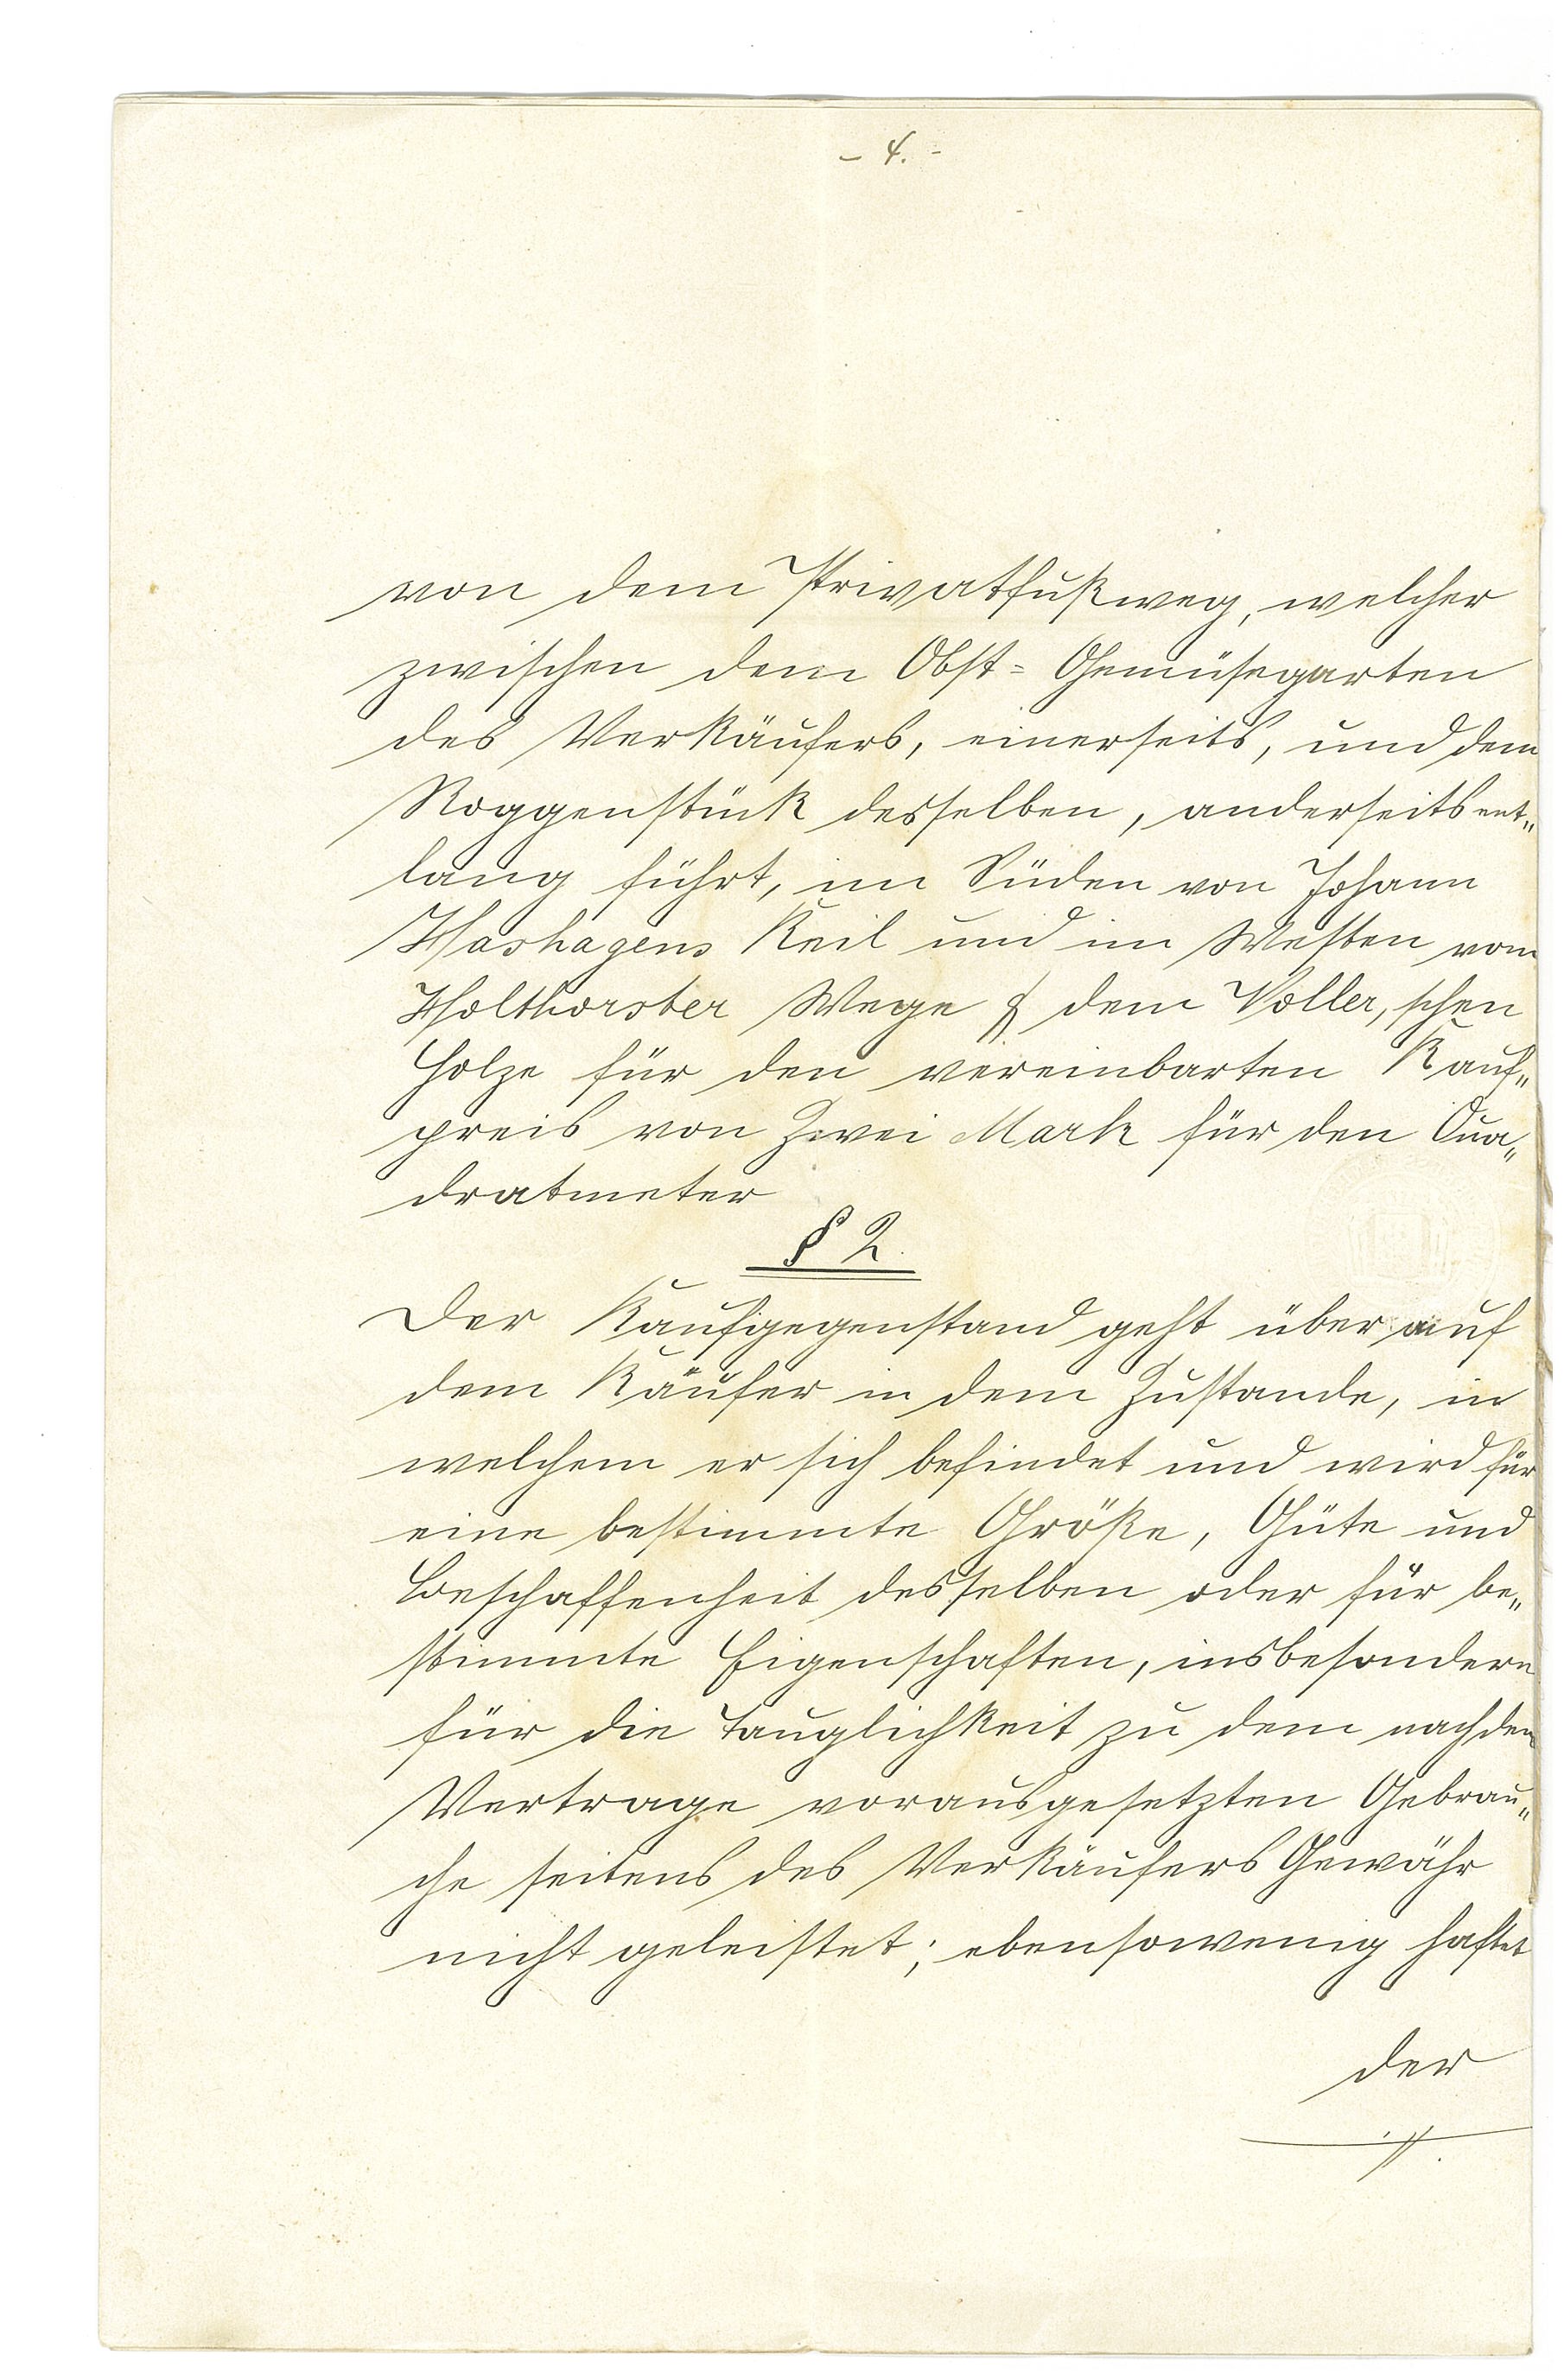 - 4. -
von dem Privatfußweg, welcher
zwischen dem Obst= Gemüsegarten
des Verkäufers, einerseits, und dem
Roggenstück desselben, anderseits ent„
lang führt, im Süden von Johann
Hashagens Keil und im Westen vom
Holthorster Wege & dem Voller,schen
Holze für den vereinbarten Kauf„
preis von Zwei Mark für den Qua„
dratmeter
§ 2.
Der Kaufgegenstand geht über auf
dem Käufer in dem Zustande, in
welchem er sich befindet und wird für
eine bestimmte Größe, Güte und
Beschaffenheit desselben oder für be„
stimmte Eigenschaften, insbesondere
für die Tauglichkeit zu dem nach dem
Vertrage vorausgesetzten Gebrau„
che seitens des Verkäufers Gewähr
nicht geleistet; ebensowenig haftet
der